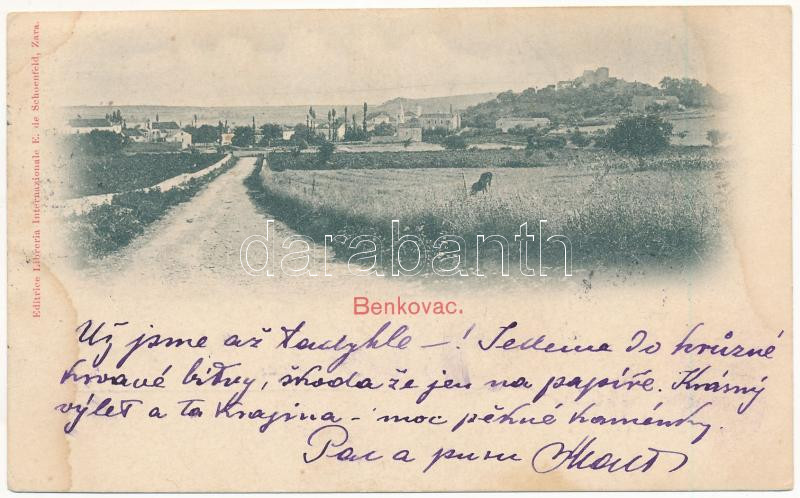 Editrice Libreria Internazionale E. de Schoenfeld, Zara.
darabanth
Benkovac.
Už jsme až tadyhle – ! Jedeme do hrůzné
krvavé bitvy, škoda že jen na papíře. Krásný
výlet a ta krajina – moc pěkné kaménky.
Pac a pusu